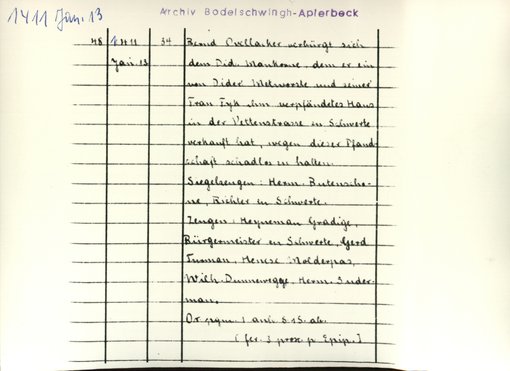 1411 Jan. 13
Archiv Bodelschwingh-Aplerbeck
48 1411 34 Bernd verbürgt sich
Jan 13 dem Did. dem er ein
von Dider Melworste und seiner
Frau Fyk ihm verpfändetes Haus
in der Vettenstrasse in Schwerte
verkauft hat, wegen dieser Pfand-
schaft schadlos zu halten.
Siegelzeugen: Herm. Butensche-
ne, Richter in Schwerte.
Zeugen: Heyneman Gradige,
Bürgermeister in Schwerte, Gerd
Tusman, Henese Molderpas,
Wilh. Dunnewegge, Herm. Suder-
man.
Or. pgm. 1 anh. S. 15. ab.
[fer. 3 prox. p. Epip.]